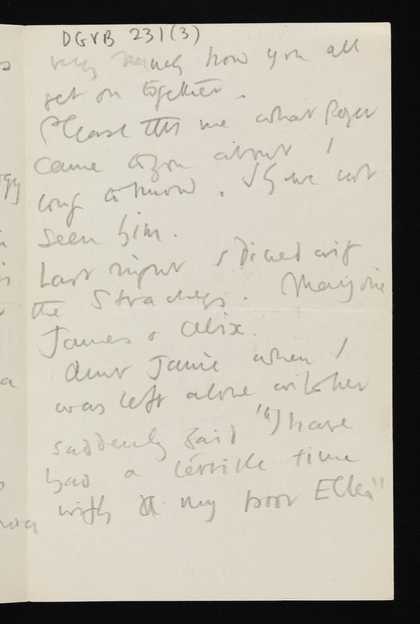 DGVB 231(3)
very much how you all
get on together.
Please tell me what Roger
came to you about I
long to know. I have not
seen him.
Last night I dined with
the Stracheys. Marjorie
James & Alix.
Aunt Janie when I
was left alone with her
suddenly said "I have
had a terrible time
with my poor Ellen"